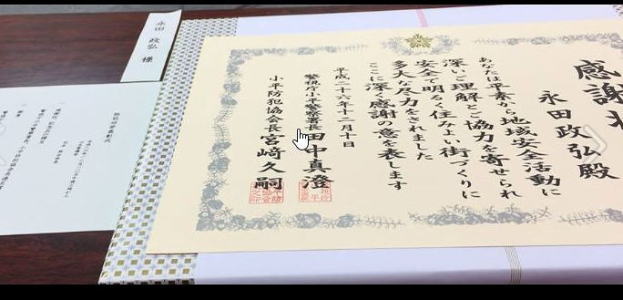 感謝状
永田政弘殿
あなたは平素から地域安全活動に
深いご理解とご協力を寄せられ
安全で明るく住みよい街づくりに
多大な尽力をされました
ここに深く感謝の意を表します
平成二十六年十二月十日
警視庁小平警察署長 田中真澄
小平防犯協会長 宮崎久嗣
永田 政弘 様